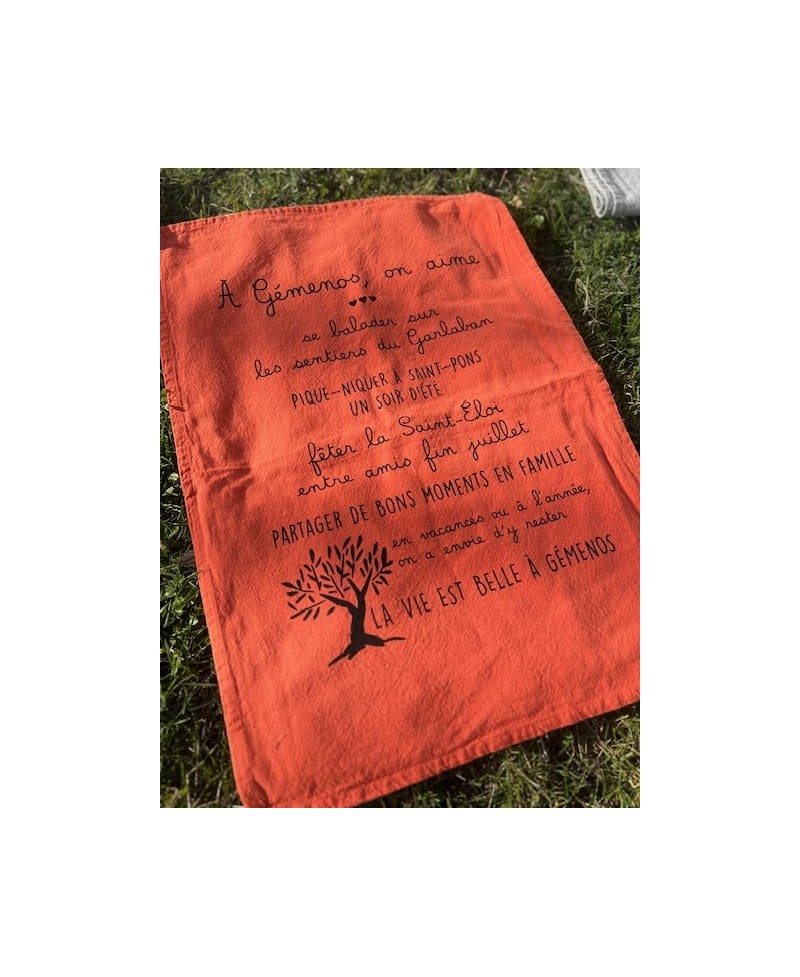 À Gémenos, on aime
se balader sur
les sentiers du Garlaban
PIQUE-NIQUER À SAINT-PONS
UN SOIR D'ÉTÉ
fêter la Saint-Éloi
entre amis fin juillet
PARTAGER DE BONS MOMENTS EN FAMILLE
en vacances ou à l'année,
on a envie d'y rester
LA VIE EST BELLE À GÉMENOS